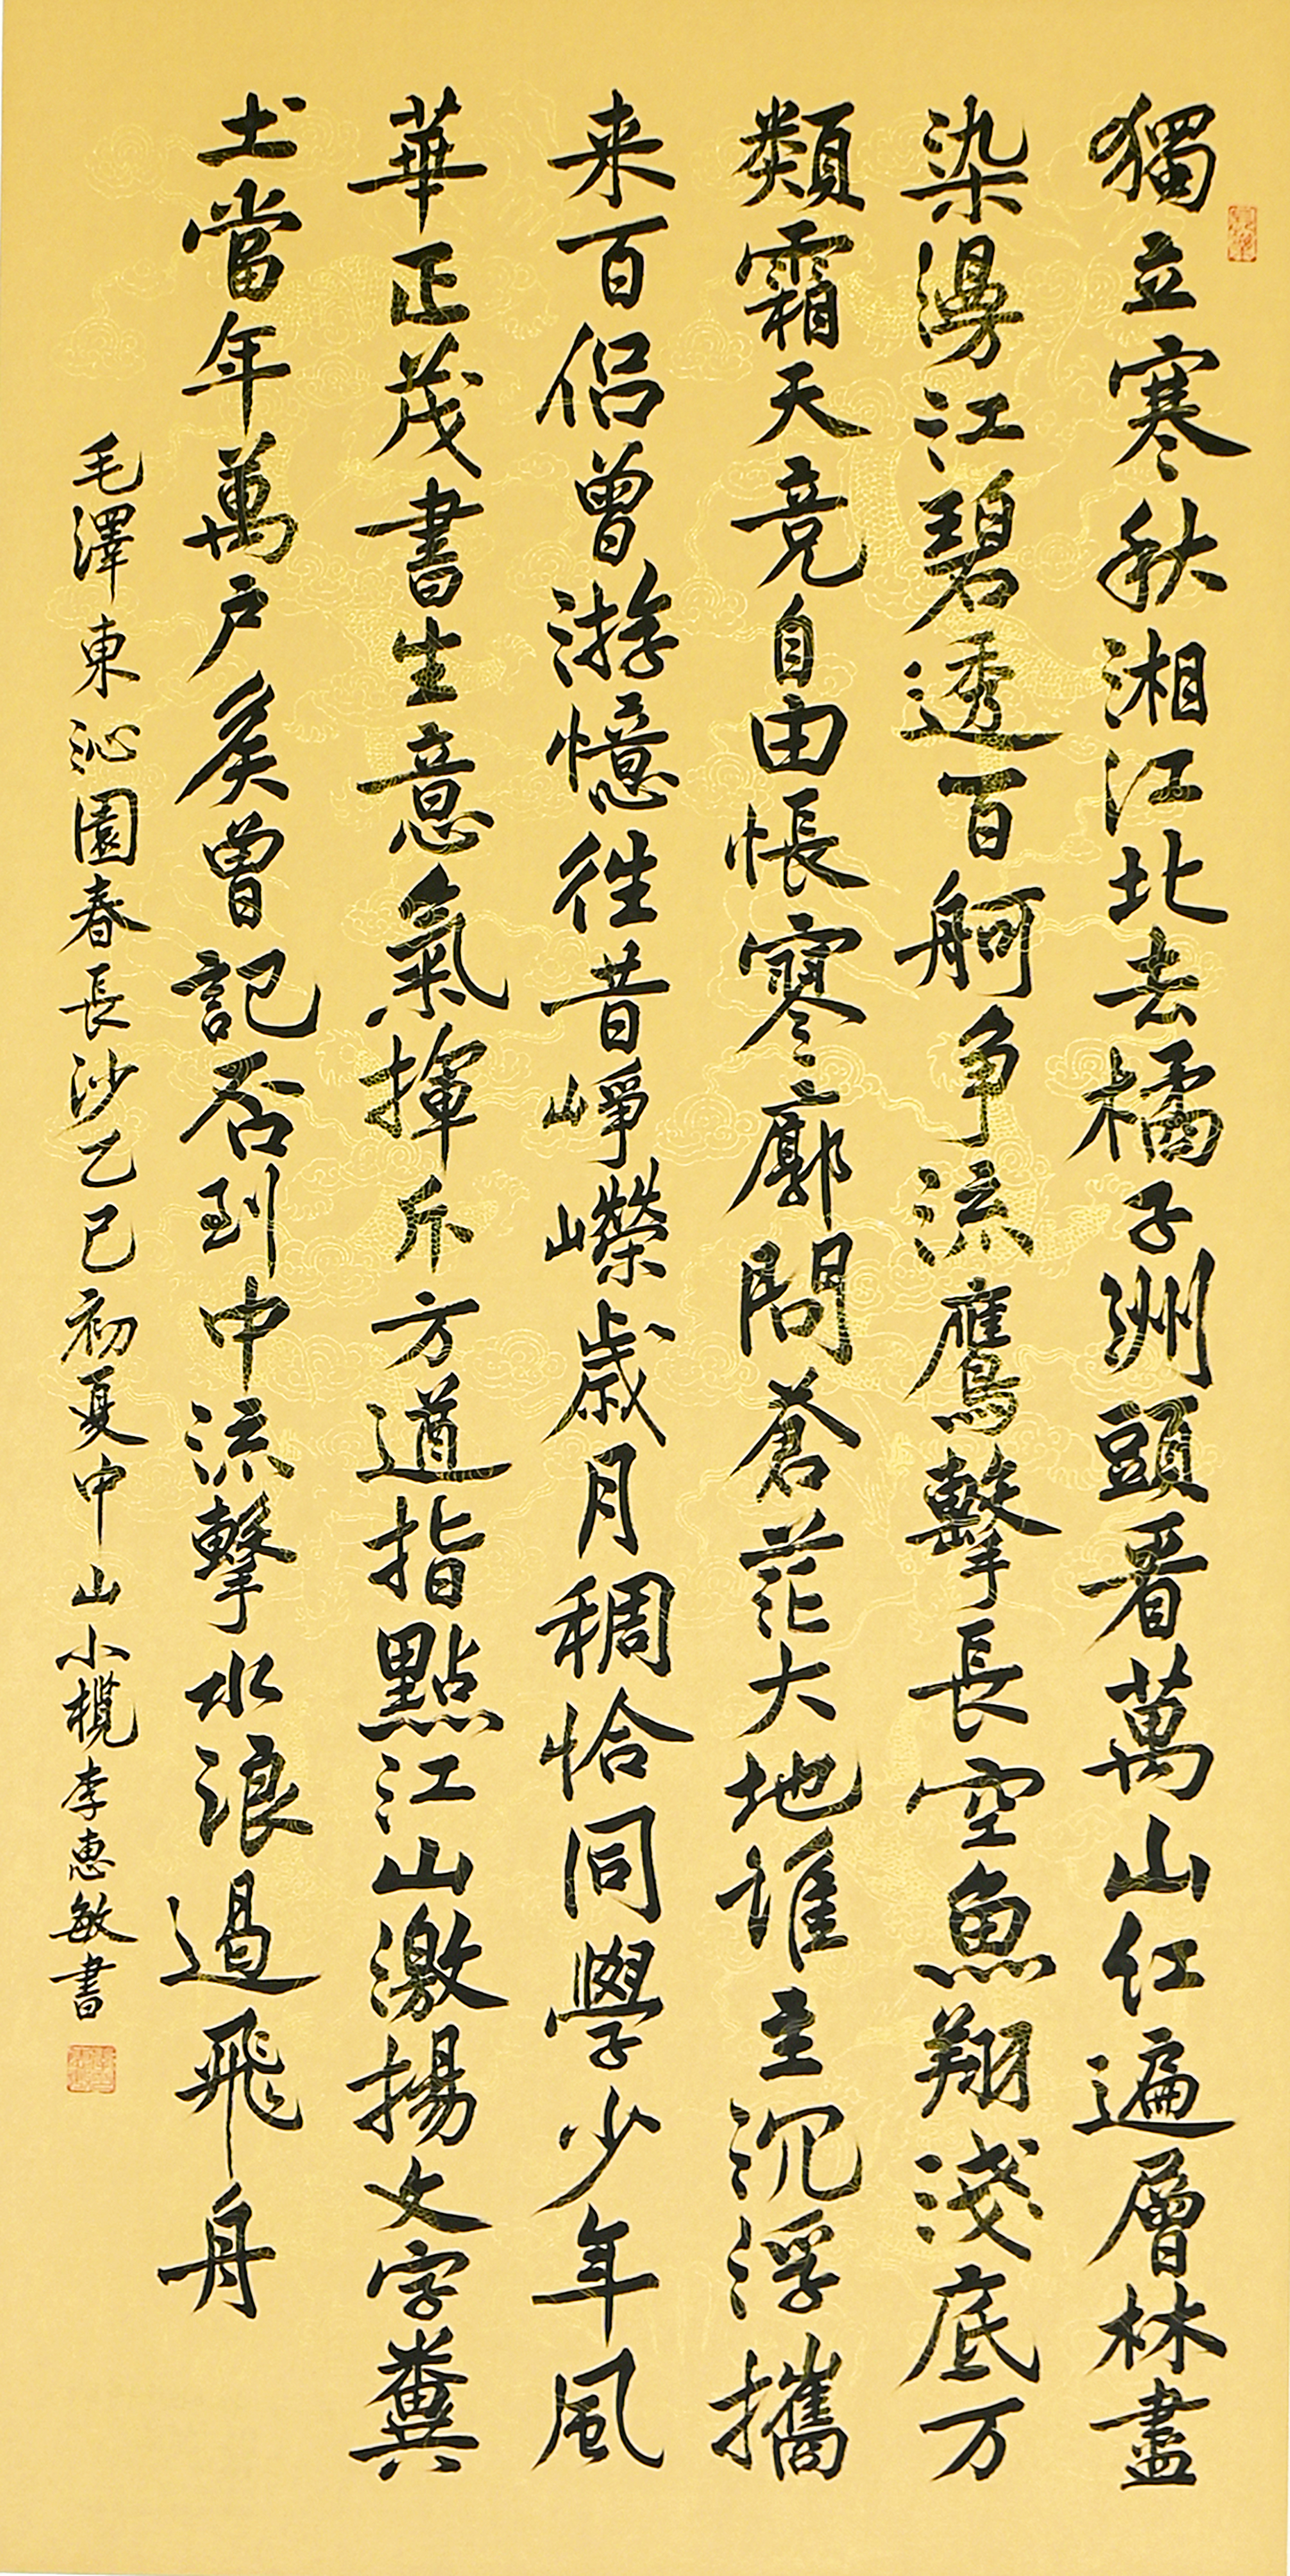 獨立寒秋湘江北去橘子洲頭看萬山红遍層林盡
染漫江碧透百舸争流鷹擊長空魚翔淺底万
類霜天竞自由悵寥廓問蒼茫大地誰主沉浮攜
来百侣曾游憶往昔崢嶸歲月稠恰同學少年風
華正茂書生意氣揮斥方遒指點江山激揚文字糞
土當年萬户矦曾記否到中流擊水浪遏飛舟
毛澤東沁園春長沙乙巳初夏中山小榄李惠敏書